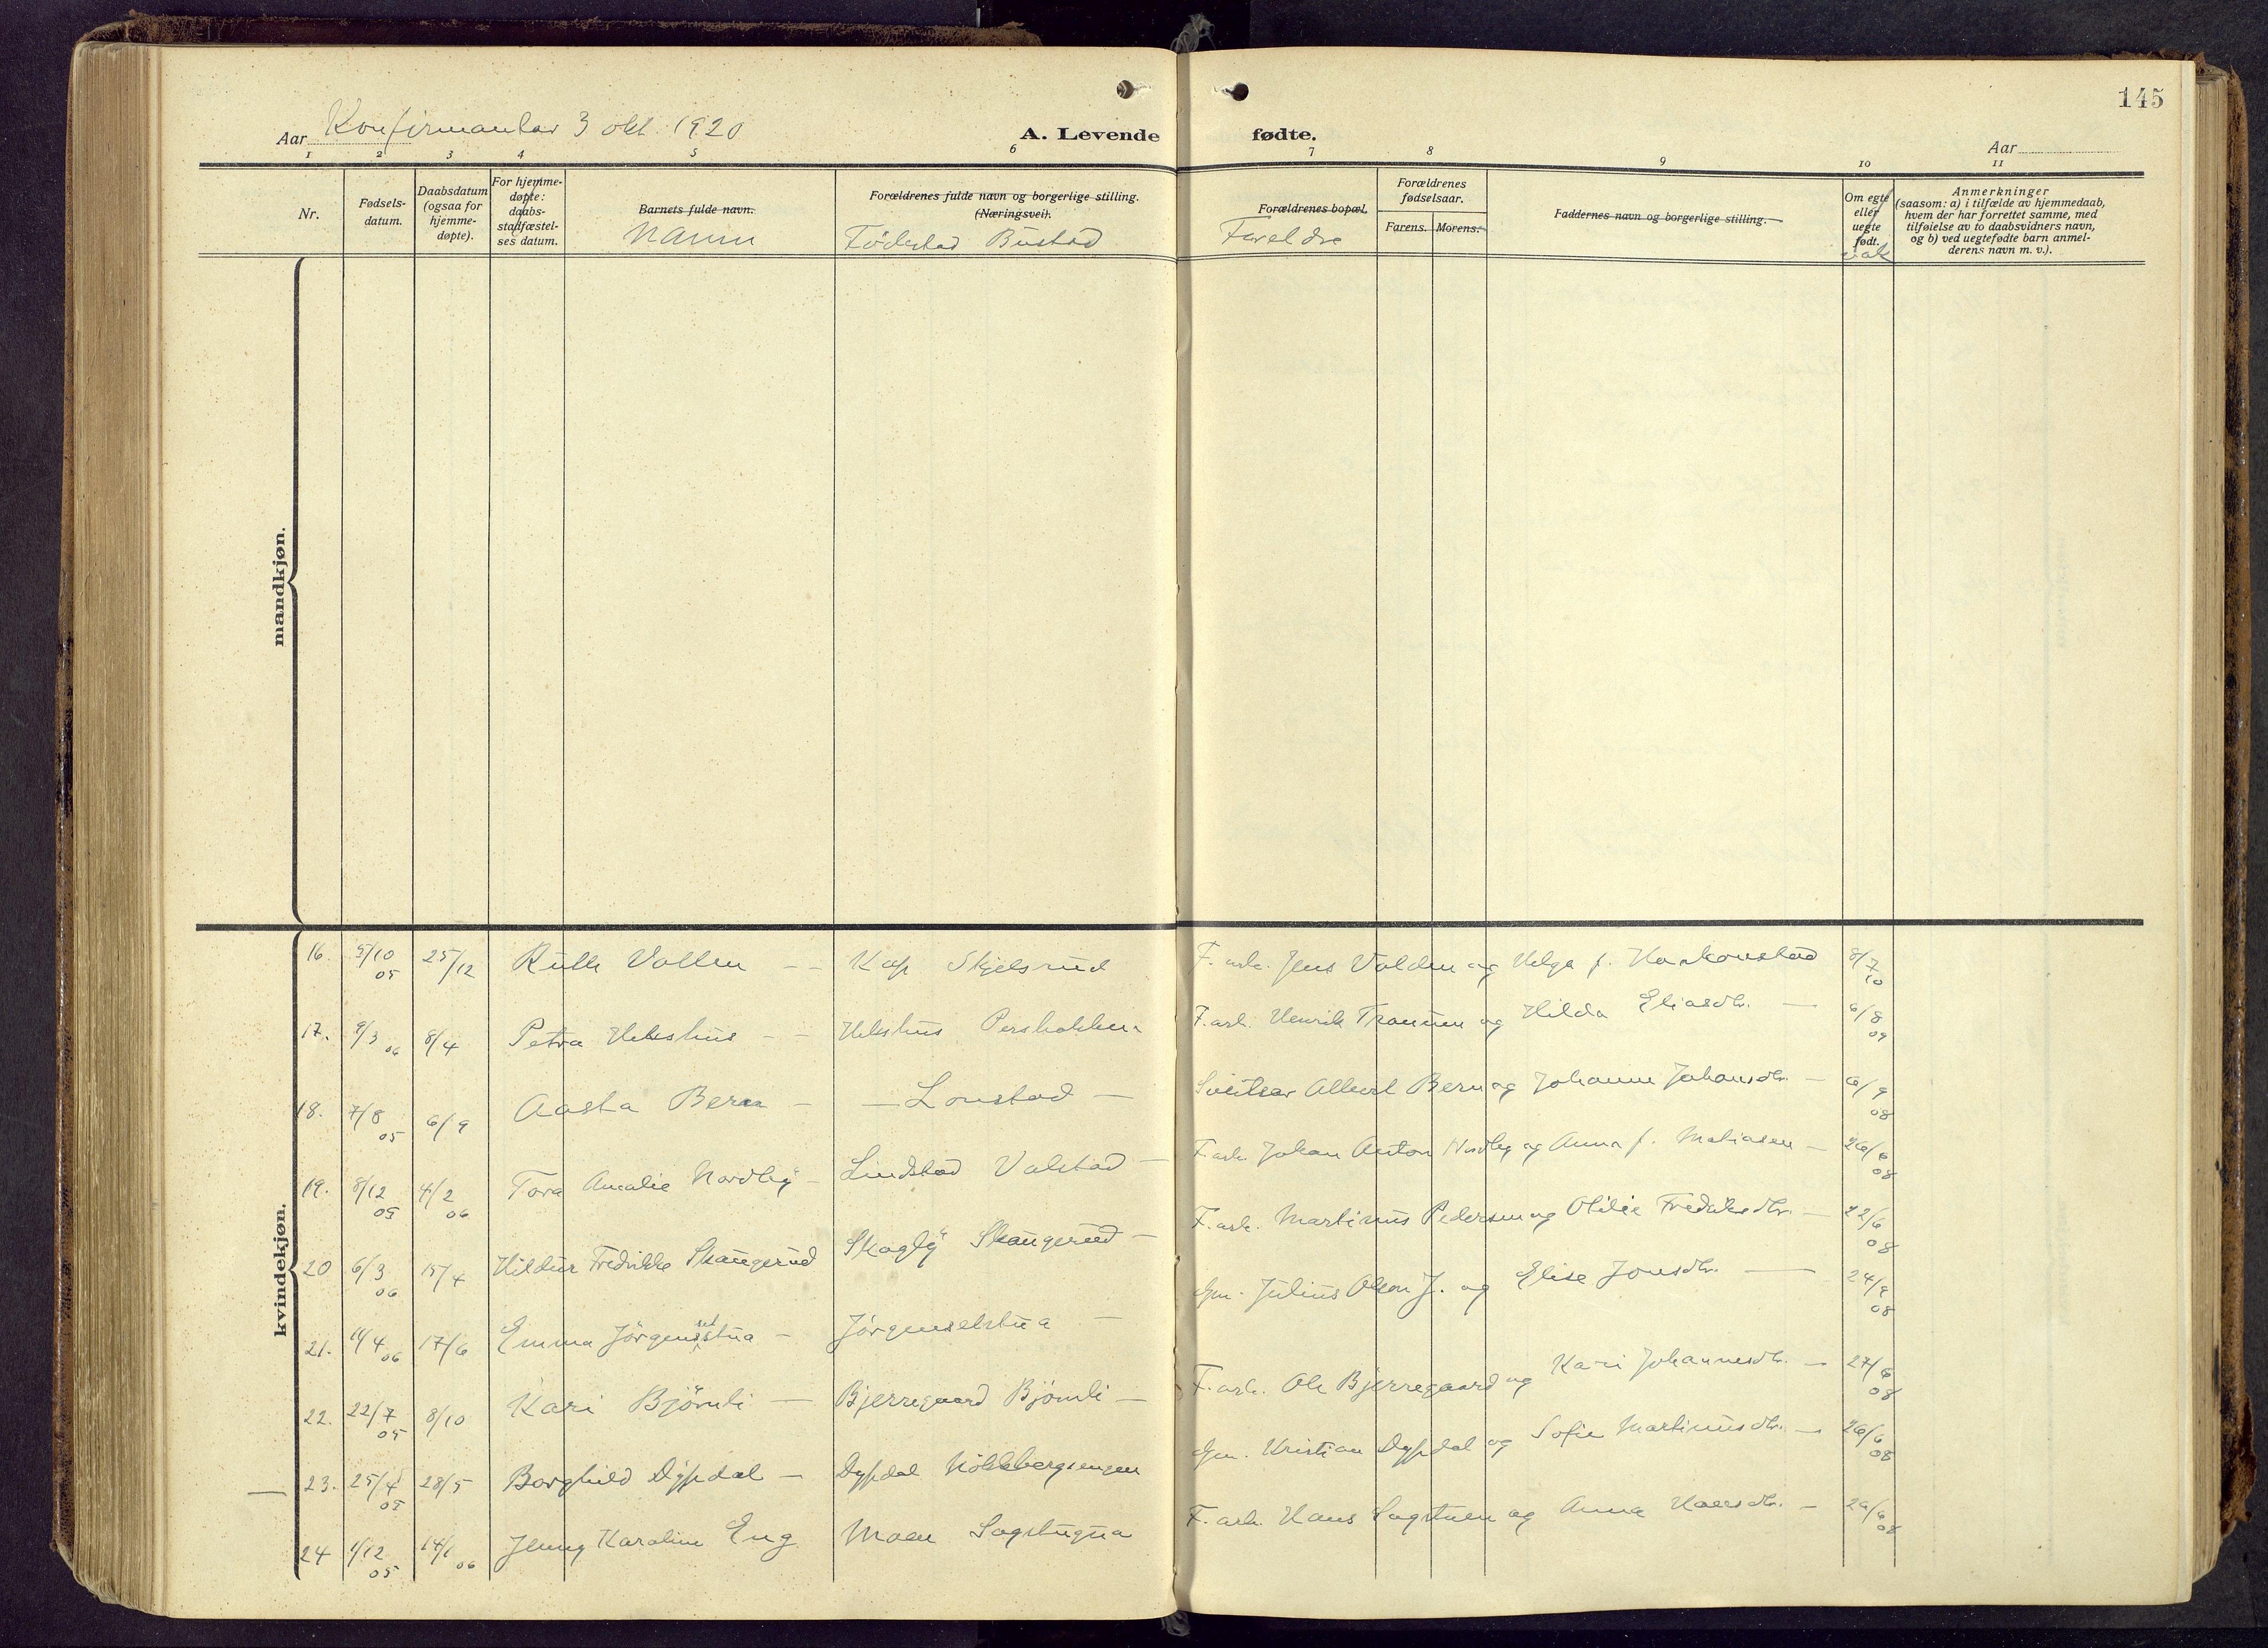 145
Aar Konfirmantar 3 okt. 1920
A. Levende fødte.
Aar
1 2 3 4 5 6 7 8 9 10 11
Nr.
Fødsels-
datum.
Daabsdatum
(ogsaa for
hjemme-
døpte).
For hjemme-
døpte:
daabs-
stadfæstel-
ses datum.
Barnets fulde navn.
Namn
Forældrenes fulde navn og borgerlige stilling.
(Næringsvei).
Fødestad Bustad
Forældrenes bopæl.
Foreldre
Forældrenes
fødselsaar.
Farens. Morens.
Faddernes navn og borgerlige stilling.
Om egte
eller
uegte
født.
Anmerkninger
(saasom: a) i tilfælde av hjemmedaab,
hvem der har forrettet samme, med
tilføielse av to daabsvidners navn,
og b) ved uegtefødte barn anmel-
derens navn m. v.).
mandkjøn.
kvindekjøn.
16. 5/10 05 25/12 Ruth Vollen Kap Skjelsrud F. arb. Jens Volden og Helga f. Haakonstad 8/7 10
17. 9/3 06 8/4 Petra Hekshus Hekshus Persbakken F. arb. Henrik og Hilda Eliasdtr. 6/8 09
18. 7/8 05 6/9 Aasta Bern Lonstad Sveitser Albert Bern og Johanne Johansdtr. 6/9 08
19. 8/12 05 4/2 06 Tora Amalie Nordby Lindstad Valstad F. arb. Johan Anton Nordby og Anna f. Matiasen 26/6 08
20 6/3 06 15/4 Hildur Fredrikke Skaugerud Skogly Skaugerud F. arb. Martinus Pedersen og Otilie Fredriksdtr. 22/6 08
21. 11/4 06 17/6 Emma Jörgensetstua Jörgensetstua Gm. Julius Olsen J. og Elise Jonsdtr. 24/8 08
22. 22/7 05 8/10 Kari Björnli Bjerregaard Björnli F. arb. Ole Bjerregaard og Kari Johannesdtr. 27/6 08
23. 25/4 05 28/5 Borghild Dypdal Dypdal Nökkbergsengen Gm. Kristian Dypdal og Sofie Martinusdtr. 26/6 08
24 1/12 05 14/1 06 Jenny Karoline Eng Moen Sagstugua F. arb. Hans Sagstuen og Anna Hansdtr. 26/6 08